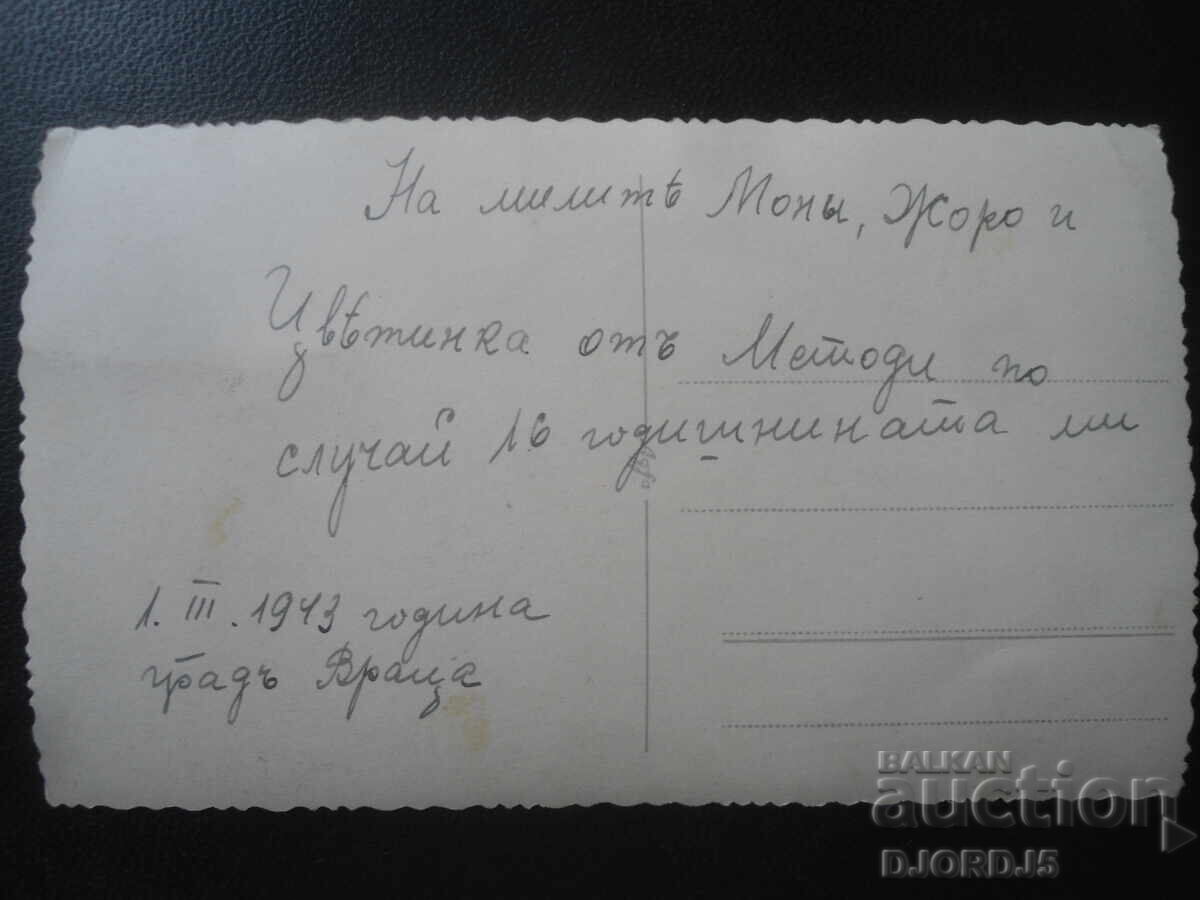 На милитѣ Моны, Жоро и
Цвѣтинка отъ Методи по
случай 16 годишнината ми
1. III. 1943 година
градъ Враца
Agfa
BALKAN
auction
DJORDJ5